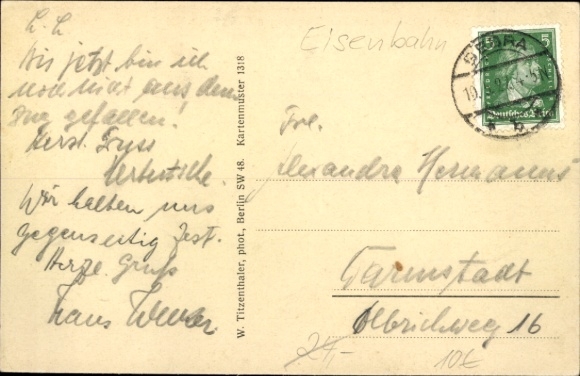 L. L.
Bis jetzt bin ich
noch nicht aus dem
Zug gefallen!
Herzl. Gruss
Wir halten uns
gegenseitig fest.
Herzl. Gruß
Hans
W. Titzenthaler, phot., Berlin SW 48. Kartenmuster 1318
Eisenbahn
BEBRA
5
Deutsches Reich
Frl.
Alexandra Hermanns
Darmstadt
Olbrichweg 16
24,-
10€